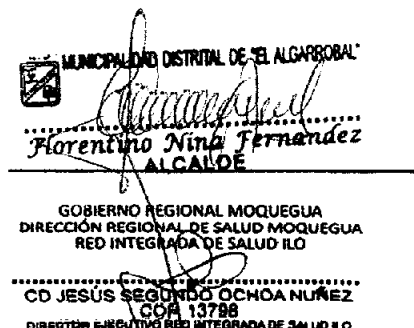 MUNICIPALIDAD DISTRITAL DE "EL ALGARROBAL"
Florentino Nina Fernandez
ALCALDE
GOBIERNO REGIONAL MOQUEGUA
DIRECCIÓN REGIONAL DE SALUD MOQUEGUA
RED INTEGRADA DE SALUD ILO
CD JESÚS SEGUNDO OCHOA NUÑEZ
COP. 13798
DIRECTOR EJECUTIVO RED INTEGRADA DE SALUD ILO